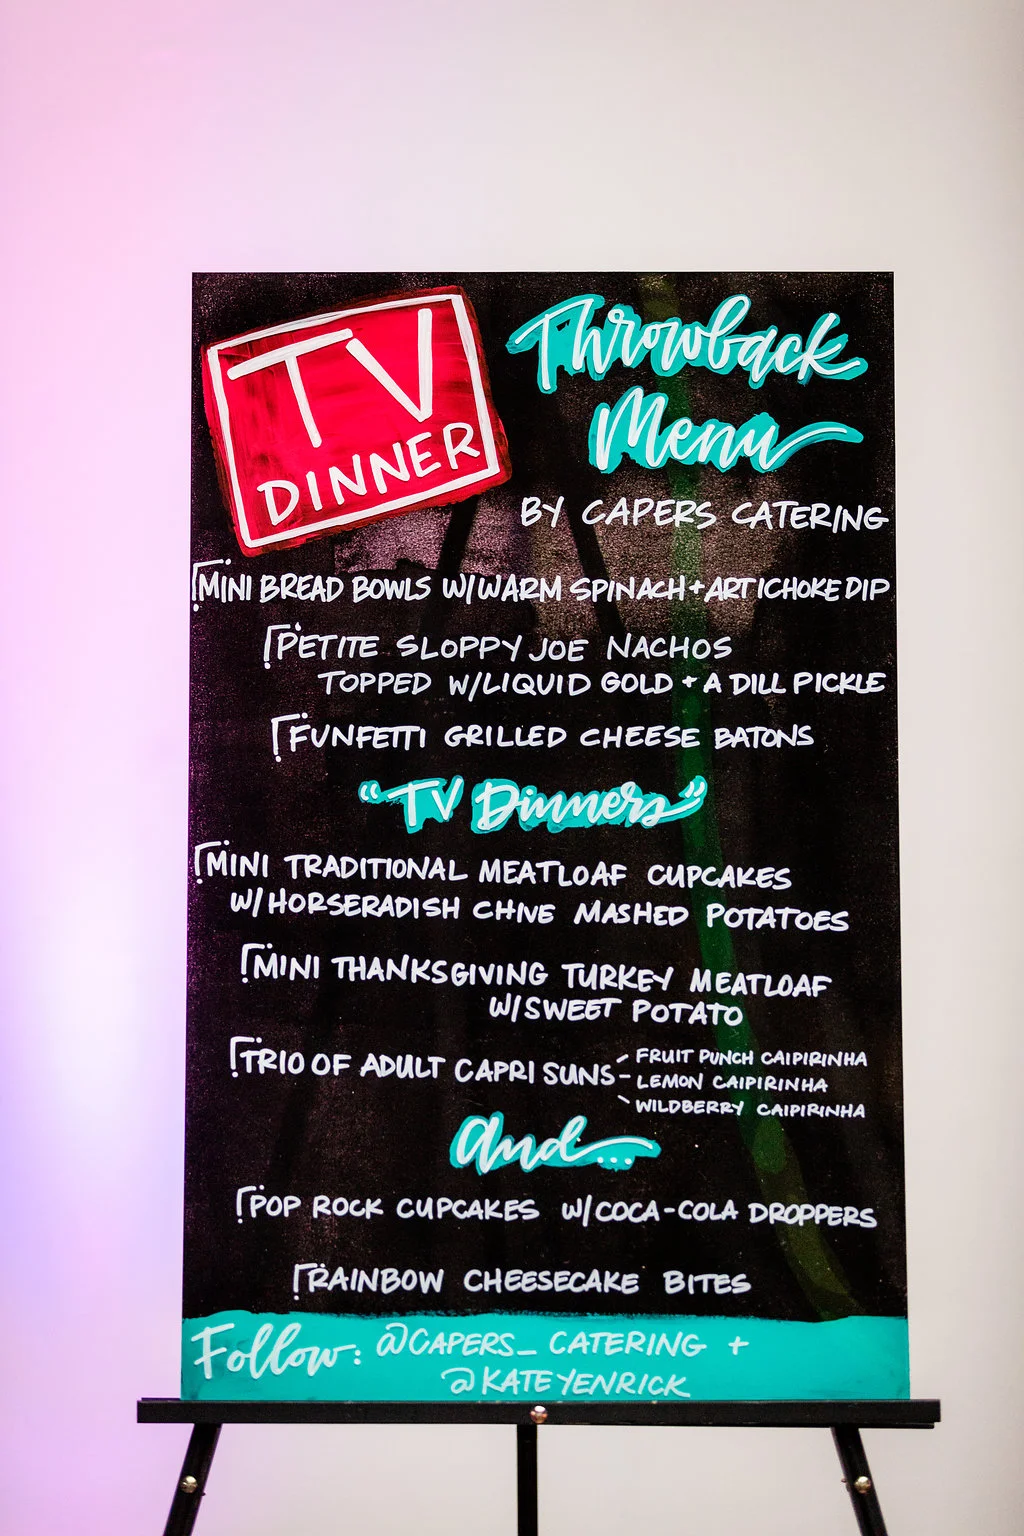 TV
DINNER
Throwback
Menu
BY CAPERS CATERING
MINI BREAD BOWLS W/WARM SPINACH + ARTICHOKE DIP
PETITE SLOPPY JOE NACHOS
TOPPED W/LIQUID GOLD + A DILL PICKLE
FUNFETTI GRILLED CHEESE BATONS
"TV Dinners"
MINI TRADITIONAL MEATLOAF CUPCAKES
W/HORSERADISH CHIVE MASHED POTATOES
MINI THANKSGIVING TURKEY MEATLOAF
W/SWEET POTATO
TRIO OF ADULT CAPRI SUNS
- FRUIT PUNCH CAIPIRINHA
- LEMON CAIPIRINHA
- WILDBERRY CAIPIRINHA
And...
POP ROCK CUPCAKES W/COCA-COLA DROPPERS
RAINBOW CHEESECAKE BITES
Follow: @CAPERS_CATERING +
@KATEYENRICK